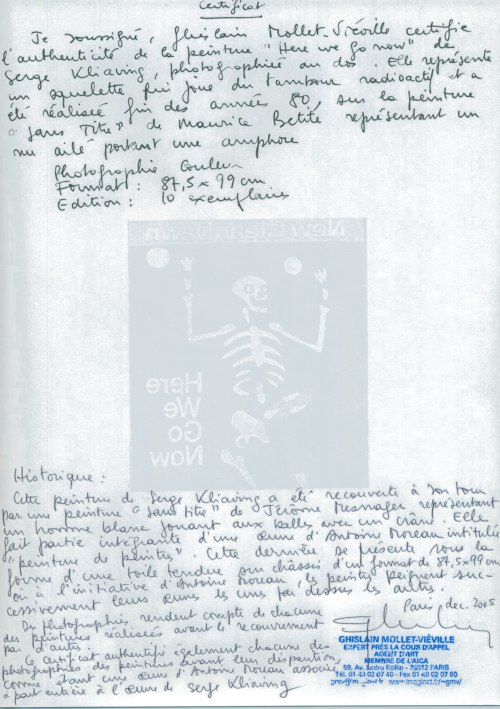 Certificat
Je soussigné, Ghislain Mollet-Viéville certifie
l'authenticité de la peinture "Here we go now" de
Serge Kliaving, photographiée au dos. Elle représente
un squelette qui joue du tambour radioactif et a
été réalisée fin des années 80, sur la peinture
"sans titre" de Maurice Betite représentant un
nu ailé portant une amphore
Photographie Couleur
Format : 87,5 x 99 cm
Edition : 10 exemplaires
New Clear Dawn
Here
We
Go
Now
Historique :
Cette peinture de Serge Kliaving a été recouverte à son tour
par une peinture "sans titre" de Jérôme Mesnager représentant
un homme blanc jouant aux balles avec un crâne. Elle
fait partie intégrante d'une œuvre d'Antoine Moreau intitulée
"peinture de peintres". Cette dernière se présente sous la
forme d'une toile tendue sur châssis d'un format de 87,5 x 99 cm
où à l'initiative d'Antoine Moreau, les peintres peignent suc-
cessivement leurs œuvres les unes par dessus les autres.
Des photographies, rendent compte de chacune
des peintures réalisées avant le recouvrement
par d'autres.
Ce certificat authentifie également chacune des
photographies des peintures avant leur disparition,
comme étant une œuvre d'Antoine Moreau associée
part entière à l'œuvre de Serge Kliaving
Paris, dec. 2005
GHISLAIN MOLLET-VIÉVILLE
EXPERT PRÈS LA COUR D'APPEL
AGENT D'ART
MEMBRE DE L'AICA
59, Av. Ledru Rollin - 75012 PARIS
Tél. 01 40 02 07 40 - Fax 01 40 02 07 60